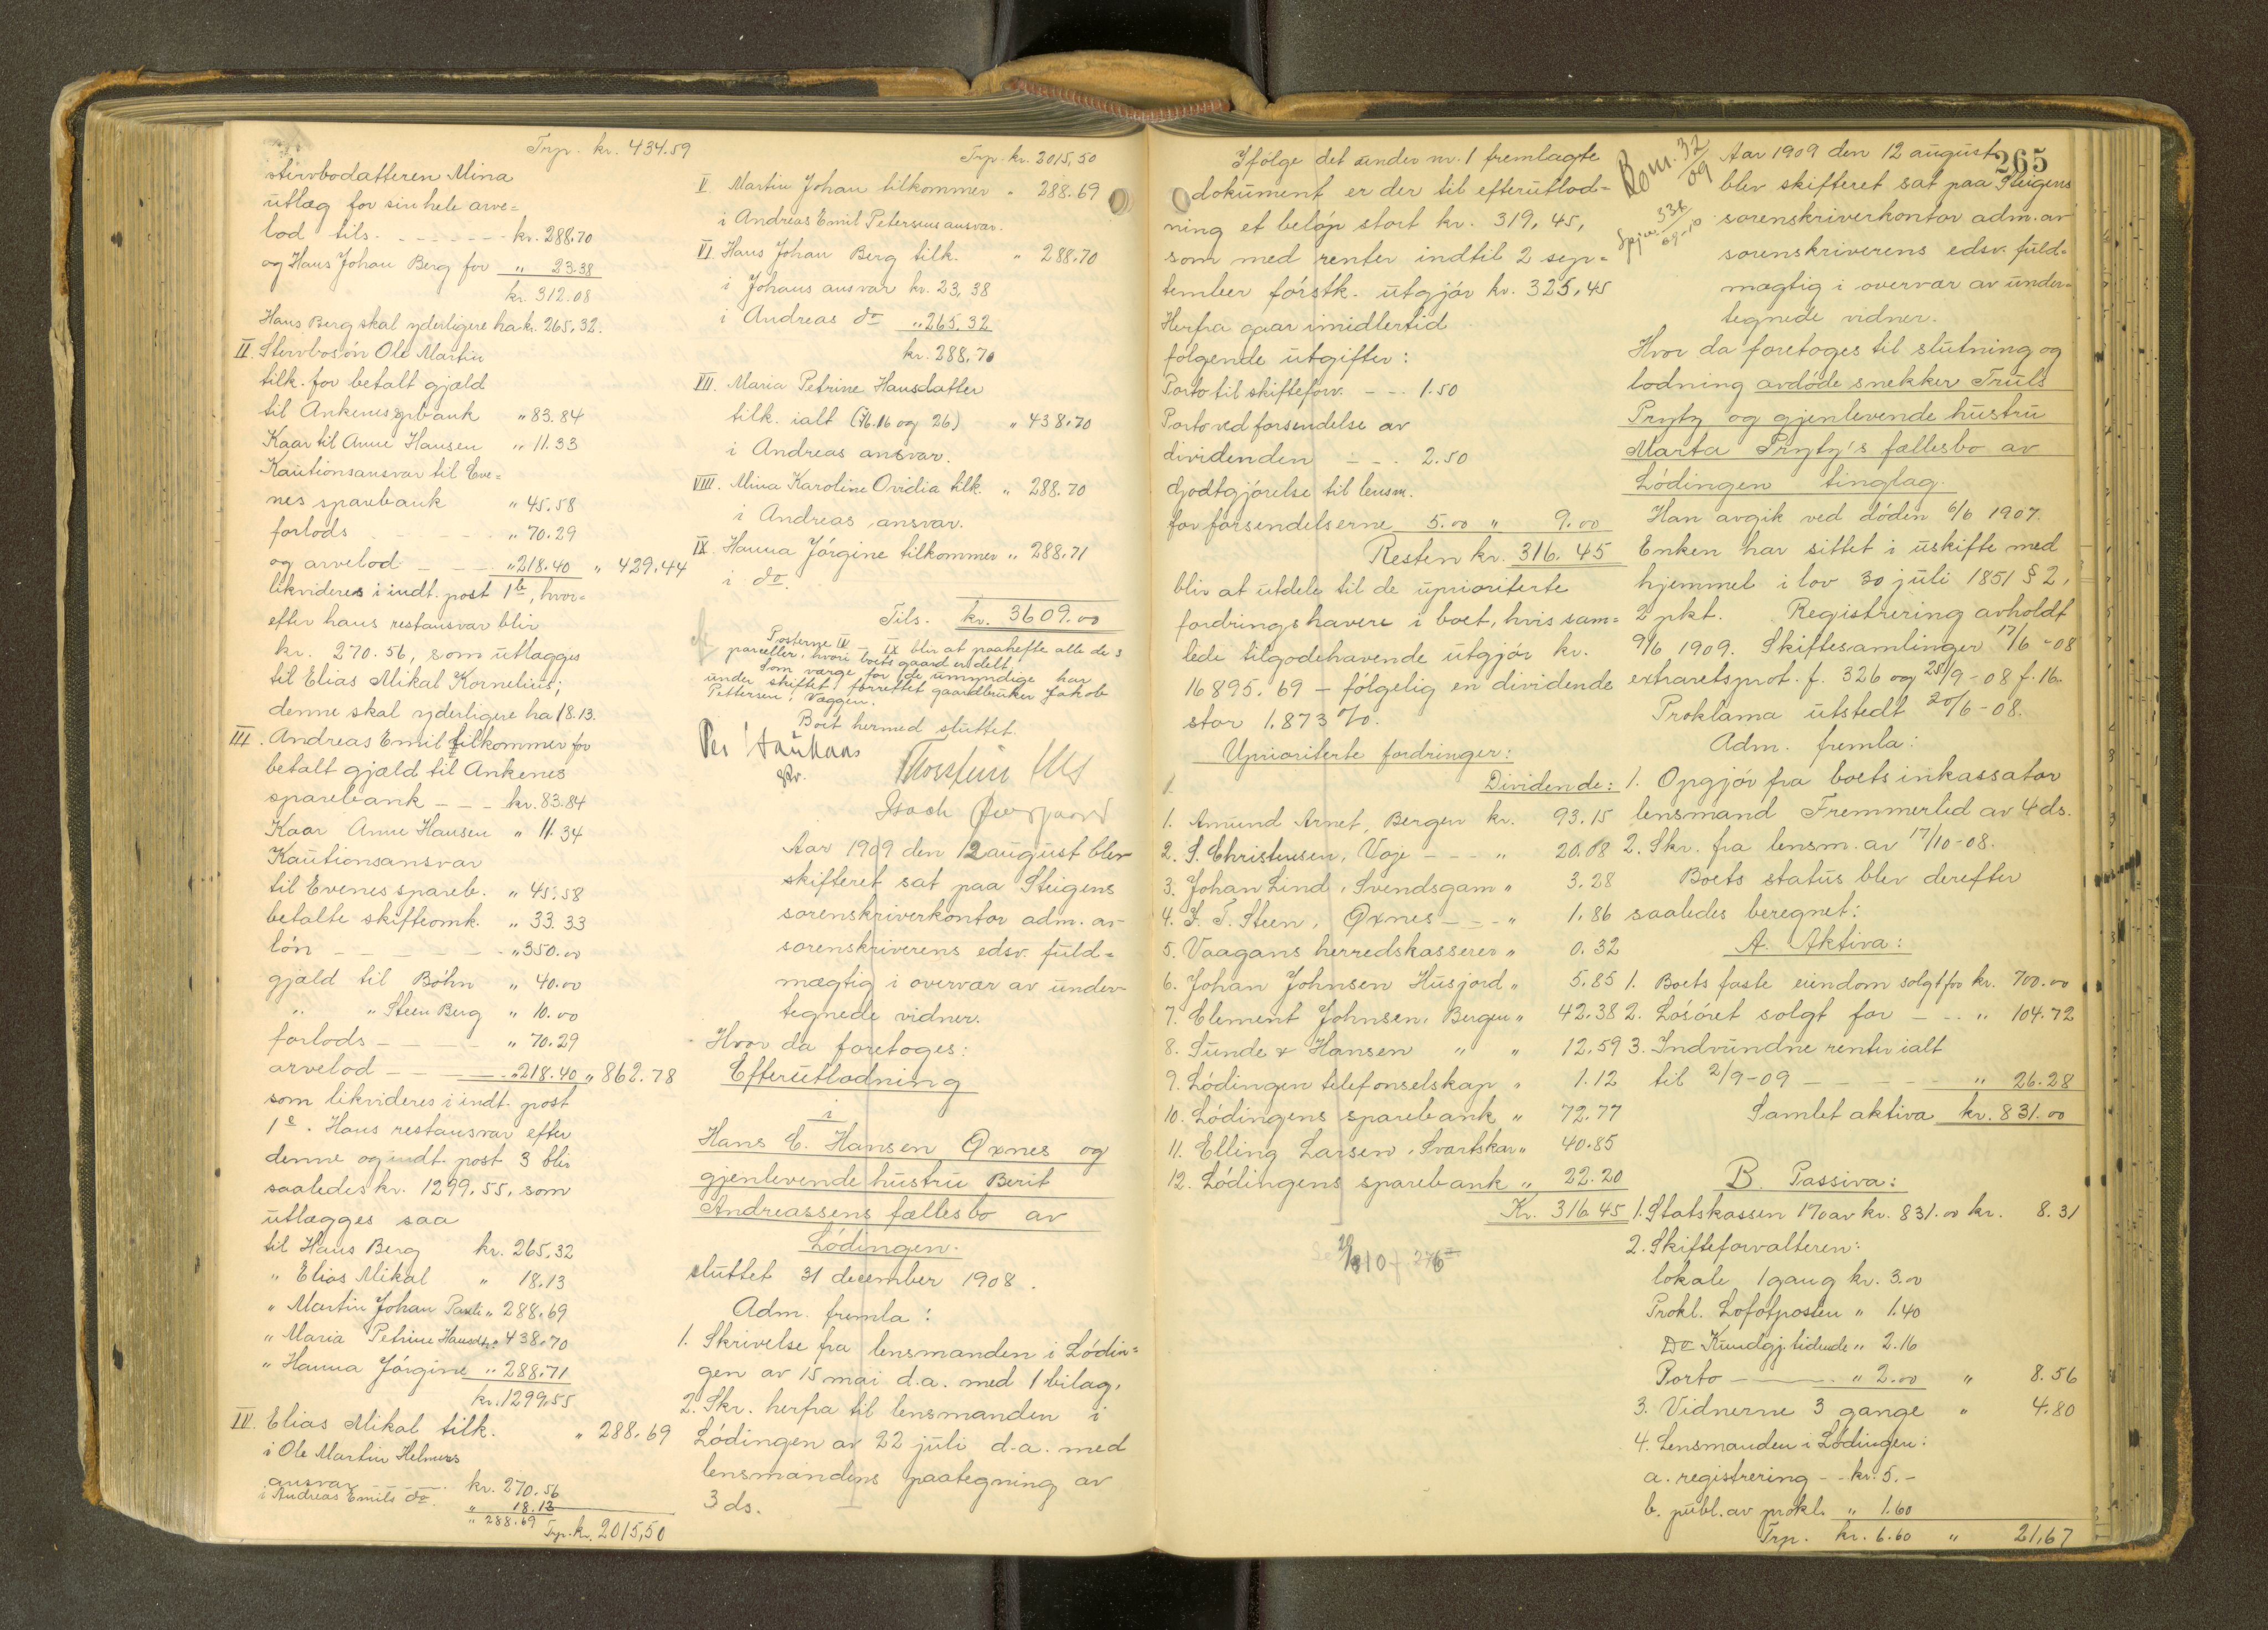 Trp. kr. 434.59
stervbodatteren Mina
utlæg for sin hele arve=
lod tils. - - - - - - kr. 288.70
og Hans Johan Berg for " 23.38
kr. 312.08
Hans Berg skal yderligere ha kr. 265.32.
II. Stervbosön Ole Martin
tilk. for betalt gjæld
til Ankenes sprbank " 83.84
Kaar til Anne Hansen " 11.33
Kautionsansvar til Eve=
nes sparebank " 45.58
forlods - - - - - " 70.29
og arvelod - - - - " 218.40 " 429.44
likvideres i indt. post 1 b, hvor=
efter hans restansvar blir
kr. 270.56, som utlægges
til Elias Mikal Kornelius;
denne skal yderligere ha 18.13.
III. Andreas Emil tilkommer for
betalt gjæld til Ankenes
sparebank - - - kr. 83.84
Kaar Anne Hansen " 11.34
Kautionsansvar
til Evenes spareb. " 45.58
betalte skifteomk. " 33.33
lön - - - - - - " 350.00
gjæld til Böhn " 40.00
" " Steen Berg " 10.00
forlods - - - - - " 70.29
arvelod - - - - - " 218.40 " 862.78
som likvideres i indt. post
1 c. Hans restansvar efter
denne og indt. post 3 blir
saaledes kr. 1299,55, som
utlægges saa
til Hans Berg kr. 265.32
" Elias Mikal " 18.13
" Martin Johan Pauli " 288.69
" Maria Petrine Hansdtr. " 438.70
" Hanna Jörgine " 288.71
kr. 1299.55
IV. Elias Mikal tilk. " 288.69
i Ole Martin Helmers
ansvar - - - - kr. 270.56
i Andreas Emils do. " 18.13
" 288.69 Trp. kr. 2015,50
Trp. kr. 2015,50
V. Martin Johan tilkommer " 288.69
i Andreas Emil Petersens ansvar.
VI. Hans Johan Berg tilk. " 288.70
i Johans ansvar kr. 23,38
i Andreas do " 265.32
kr. 288.70
VII. Maria Petrine Hansdatter
tilk. ialt (A. 16 og 26) " 438.70
i Andreas ansvar.
VIII. Mina Karoline Ovidia tilk. " 288.70
i Andreas ansvar.
IX. Hanna Jörgine tilkommer " 288.71
i do.
Tils. kr. 3609.00
Posterne IV - IX blir at paahefte alle de 3
parceller, hvori boets gaard er delt.
Som værge for de umyndige har
under skiftet forrettet gaardbruker Jakob
Pettersen, Væggen.
Boet hermed sluttet.
Aar 1909 den 12 august blev
skifteret sat paa Steigens
sorenskriverkontor adm. av
sorenskriverens edsv. fuld=
mægtig i overvær av under-
tegnede vidner.
Hvor da foretoges:
Efterutlodning
i
Hans C. Hansen Oxnes og
gjenlevende hustru Berit
Andreassens fællesbo av
Lödingen.
sluttet 31 december 1908.
Adm. fremla:
1. Skrivelse fra lensmanden i Lödin=
gen av 15 mai d.a. med 1 bilag.
2. Skr. herfra til lensmanden i
Lödingen av 22 juli d.a. med
lensmandens paategning av
3 ds.
Ifölge det under nr. 1 fremlagte
dokument er der til efterutlod=
ning et belöp stort kr. 319,45,
som med renter indtil 2 sep=
tember förstk. utgjör kr. 325,45
Herfra gaar imidlertid
følgende utgifter:
Porto til skifteforv. - - - 1.50
Porto ved forsendelse av
dividenden - - - 2.50
Godtgjörelse til lensm.
for forsendelserne 5.00 " 9.00
Resten kr. 316.45
blir at utdele til de uprioriterte
fordringshavere i boet, hvis sam=
lede tilgodehavende utgjör kr.
16895.69 - fölgelig en dividende
stor 1.873 %.
Uprioriterte fordringer:
Dividende:
1. Amund Arnet, Bergen kr. 93.15
2. S. Christensen, Voje - - - " 20.08
3. Johan Lind, Svendsgam " 3.28
4. J. T. Steen, Oxnes - - - " 1.86
5. Vaagans herredskasserer " 0.32
6. Johan Johnsen Husjord " 5.85
7. Clement Johnsen, Bergen " 42.38
8. Sunde & Hansen " " 12.59
9. Lödingen telefonselskap " 1.12
10. Lödingens sparebank " 72.77
11. Elling Larsen, Svartskar " 40.85
12. Lödingens sparebank " 22.20
Kr. 316.45
265
Kom. 32/09
334/09-10
Aar 1909 den 12 august
blev skifteret sat paa Steigens
sorenskriverkontor adm. av
sorenskriverens edsv. fuld=
mægtig i overvær av under=
tegnede vidner.
Hvor da foretoges til slutning og
lodning avdöde snekker Truls
Prytz og gjenlevende hustru
Marta Prytz's fællesbo av
Lödingen tinglag.
Han avgik ved döden 6/6 1907.
Enken har sittet i uskifte med
hjemmel i lov 30 juli 1851 § 2,
2 pkt. Registrering avholdt
9/6 1909. Skiftesamlinger 17/6 -08
extraretsprot. f. 326 og 25/9 -08 f. 16.
Proklama utstedt 20/6 -08.
Adm. fremla:
1. Opgjör fra boets inkassator
lensmand Fremmerlid av 4 ds.
2. Skr. fra lensm. av 17/10 -08.
Boets status blev derefter
saaledes beregnet:
A. Aktiva:
1. Boets faste eiendom solgt for kr. 700.00
2. Lösöret solgt for - - - " 104.72
3. Indvundne renter ialt
til 2/9 -09 - - - - - - " 26.28
Samlet aktiva kr. 831.00
B. Passiva:
1. Statskassen 1% av kr. 831.00 kr. 8.31
2. Skifteforvalteren:
lokale 1 gang kr. 3.00
Prokl. Lofotposten " 1.40
Do Kundgj. tidende " 2.16
Porto - - - " 2.00 " 8.56
3. Vidnerne 3 gange " 4.80
4. Lensmanden i Lödingen:
a. registrering - - kr. 5.-
b. publ. av prokl. " 1.60
Trp. kr. 6.60 " 21,67